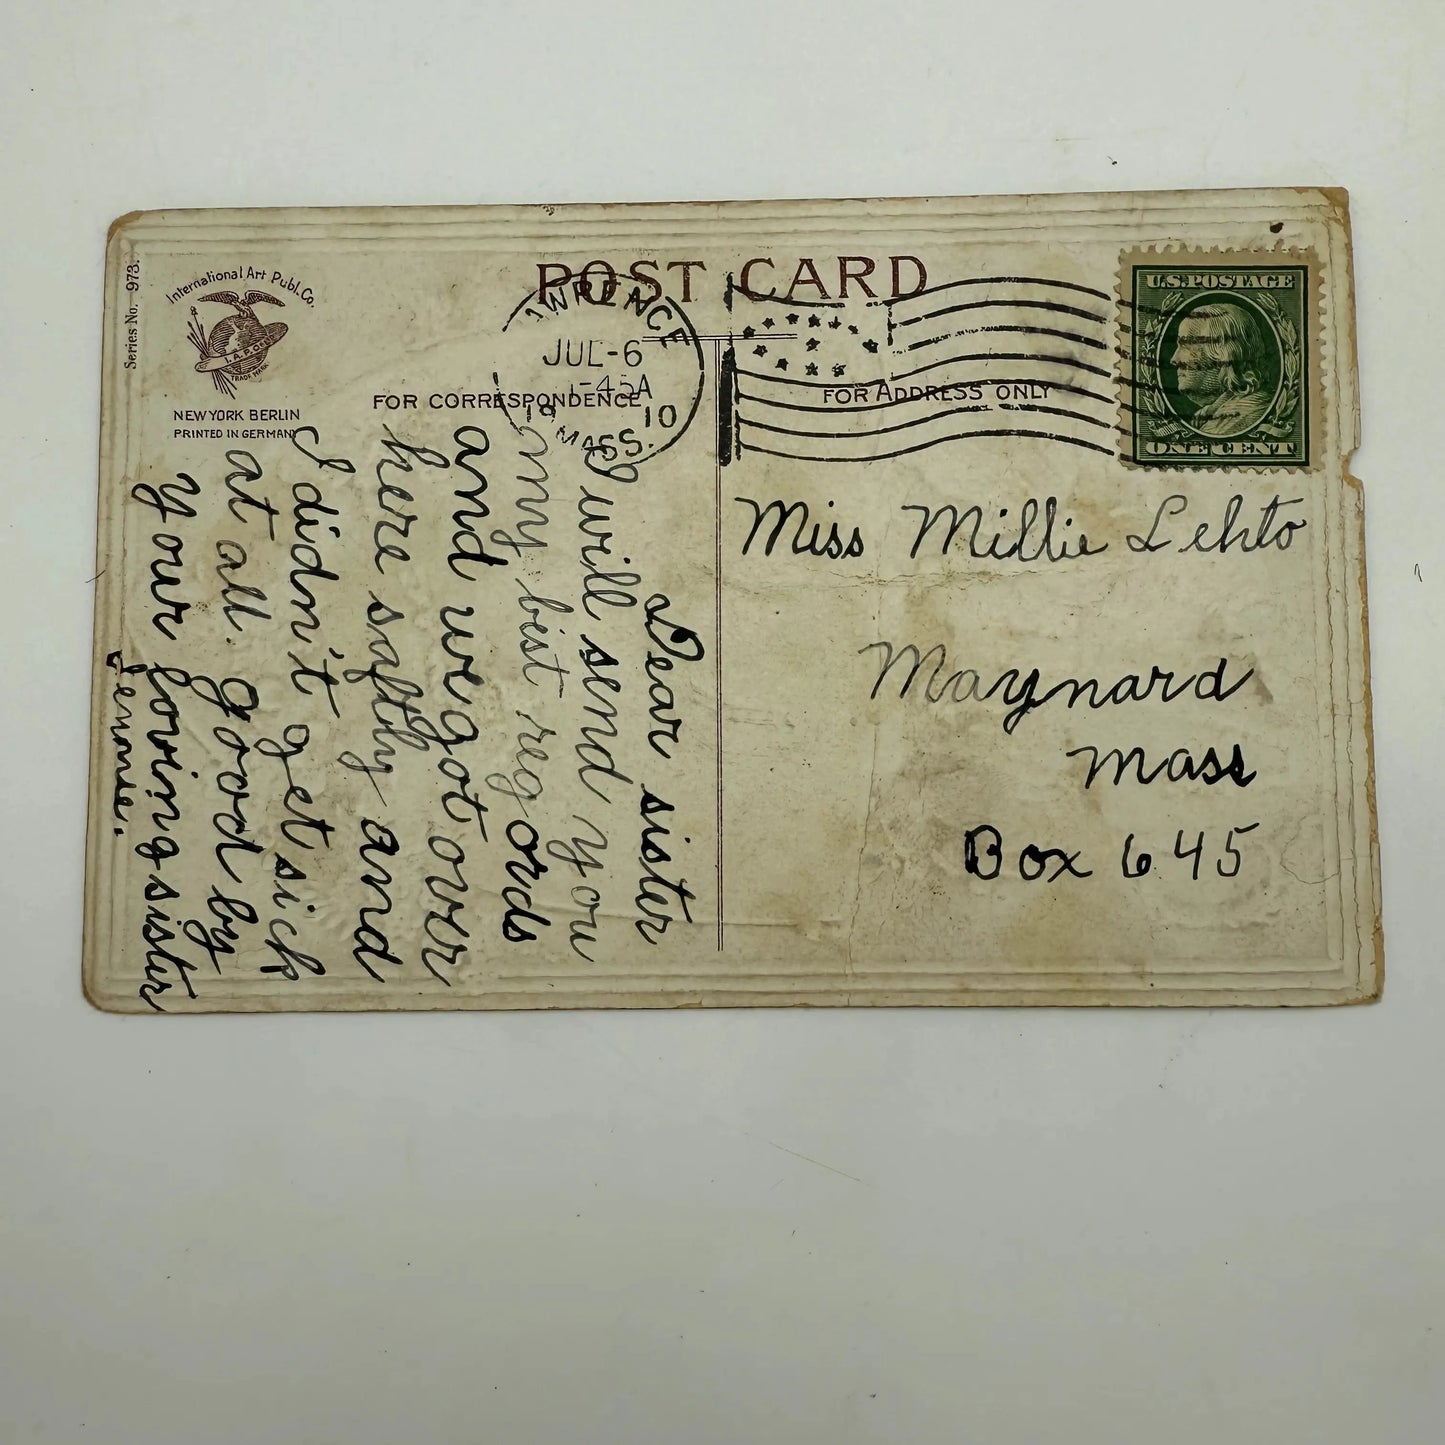 POST CARD
Series No. 973.
International Art Publ. Co.
I.A.P.Co.
TRADE MARK
NEW YORK BERLIN
PRINTED IN GERMANY
FOR CORRESPONDENCE
FOR ADDRESS ONLY
WRENCE
JUL-6
1-45A
19 10
MASS.
U.S. POSTAGE
ONE CENT
Dear sister
I will send you
my best regords
and we got over
here saftly and
I didn't get sick
at all. good by
Your loving sister
Miss Millie Lehto
Maynard
Mass
Box 645